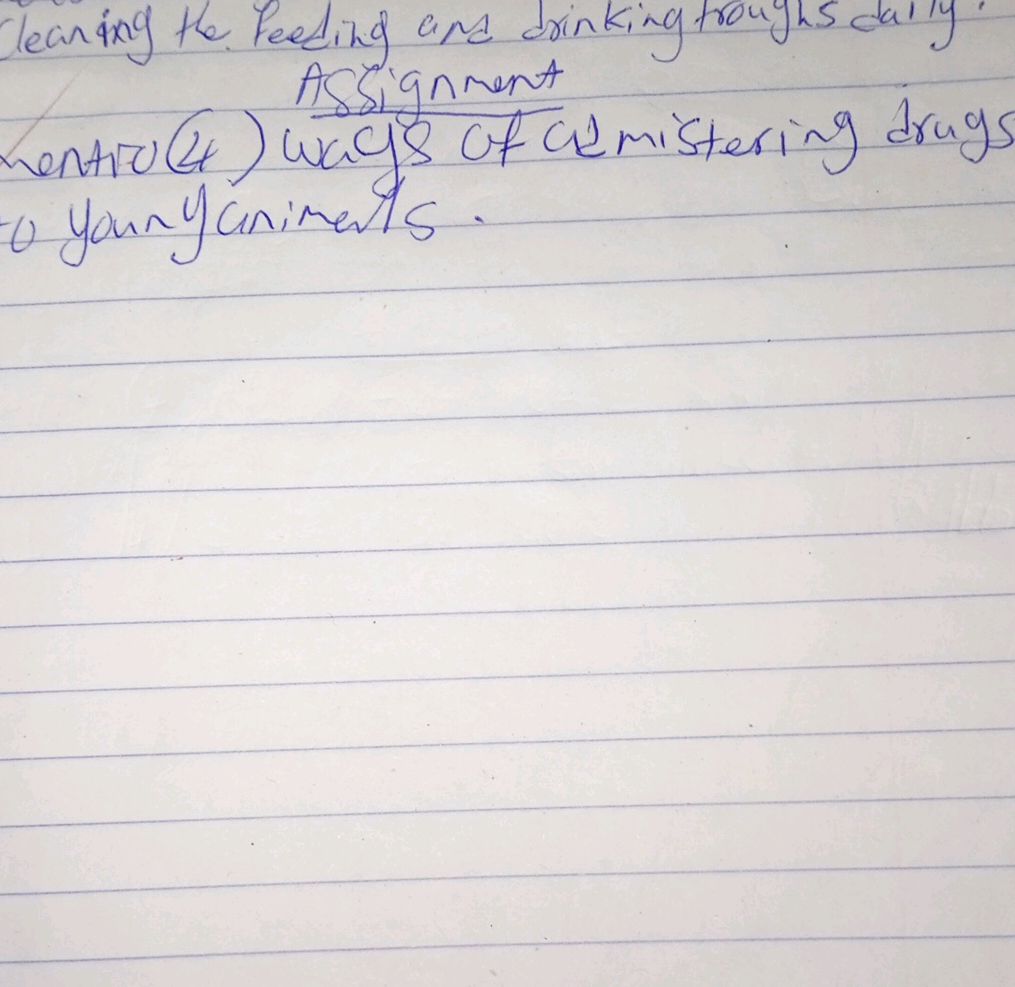 Cleaning the feeding and drinking troughs daily.
Assignment
mentio (4) ways of admistering drugs
to young animals.